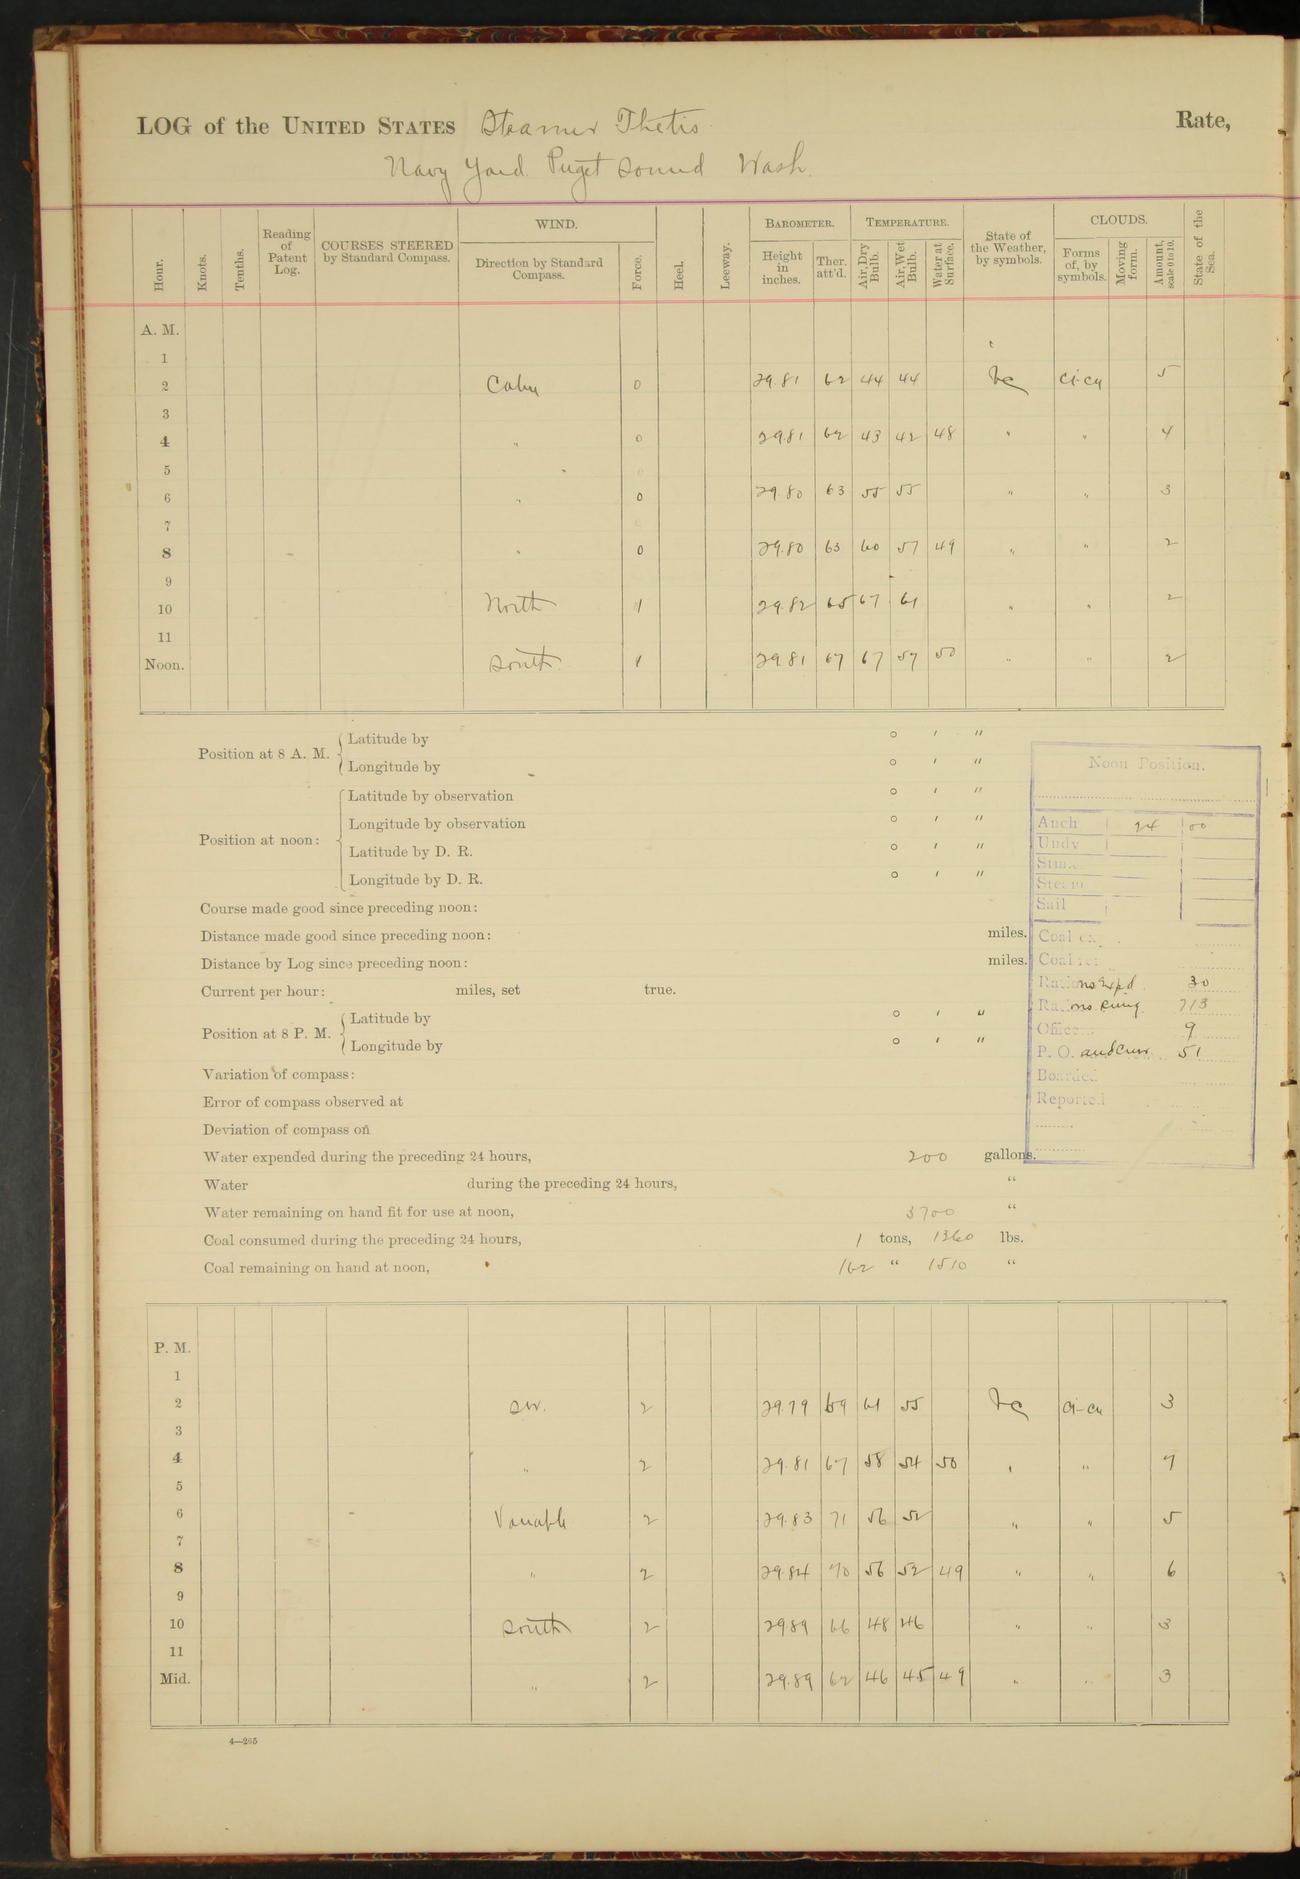 LOG of the UNITED STATES Steamer Thetis Rate,
Navy Yard Puget Sound Wash.
Hour. Knots. Tenths. Reading of Patent Log. COURSES STEERED by Standard Compass. WIND. Direction by Standard Compass. Force. Heel. Leeway. BAROMETER. Height in inches. Ther. att'd. TEMPERATURE. Air, Dry Bulb. Air, Wet Bulb. Water at Surface. State of the Weather, by symbols. CLOUDS. Forms of, by symbols. Moving form. Amount, scale 0 to 10. State of the Sea.
A. M.
1
2 Calm 0 29.81 62 44 44 bc ci-cu 5
3
4 " 0 29.81 62 43 42 48 " " 4
5
6 " 0 29.80 63 55 55 " " 3
7
8 " 0 29.80 63 60 57 49 " " 2
9
10 North 1 29.82 65 67 61 " " 2
11
Noon. South 1 29.81 67 67 57 50 " " 2
Position at 8 A. M. Latitude by ° ′ ″
Longitude by ° ′ ″
Position at noon: Latitude by observation ° ′ ″
Longitude by observation ° ′ ″
Latitude by D. R. ° ′ ″
Longitude by D. R. ° ′ ″
Course made good since preceding noon:
Distance made good since preceding noon: miles.
Distance by Log since preceding noon: miles.
Current per hour: miles, set true.
Position at 8 P. M. Latitude by ° ′ ″
Longitude by ° ′ ″
Variation of compass:
Error of compass observed at
Deviation of compass on
Water expended during the preceding 24 hours, 200 gallons.
Water during the preceding 24 hours, "
Water remaining on hand fit for use at noon, 3700 "
Coal consumed during the preceding 24 hours, 1 tons, 1360 lbs.
Coal remaining on hand at noon, 162 " 1510 "
Noon Position.
Anch 24 00
Undy
Steam
Sail
Coal
Coal
Rations Expd 30
Rations 713
Officers 9
P. O. and Crew 51
Boarded
Reported
P. M.
1
2 SW. 2 29.79 69 61 55 bc ci-cu 3
3
4 " 2 29.81 67 58 54 50 " " 7
5
6 Variable 2 29.83 71 56 52 " " 5
7
8 " 2 29.84 70 56 52 49 " " 6
9
10 South 2 29.89 66 48 46 " " 3
11
Mid. " 2 29.89 62 46 45 49 " " 3
4—265